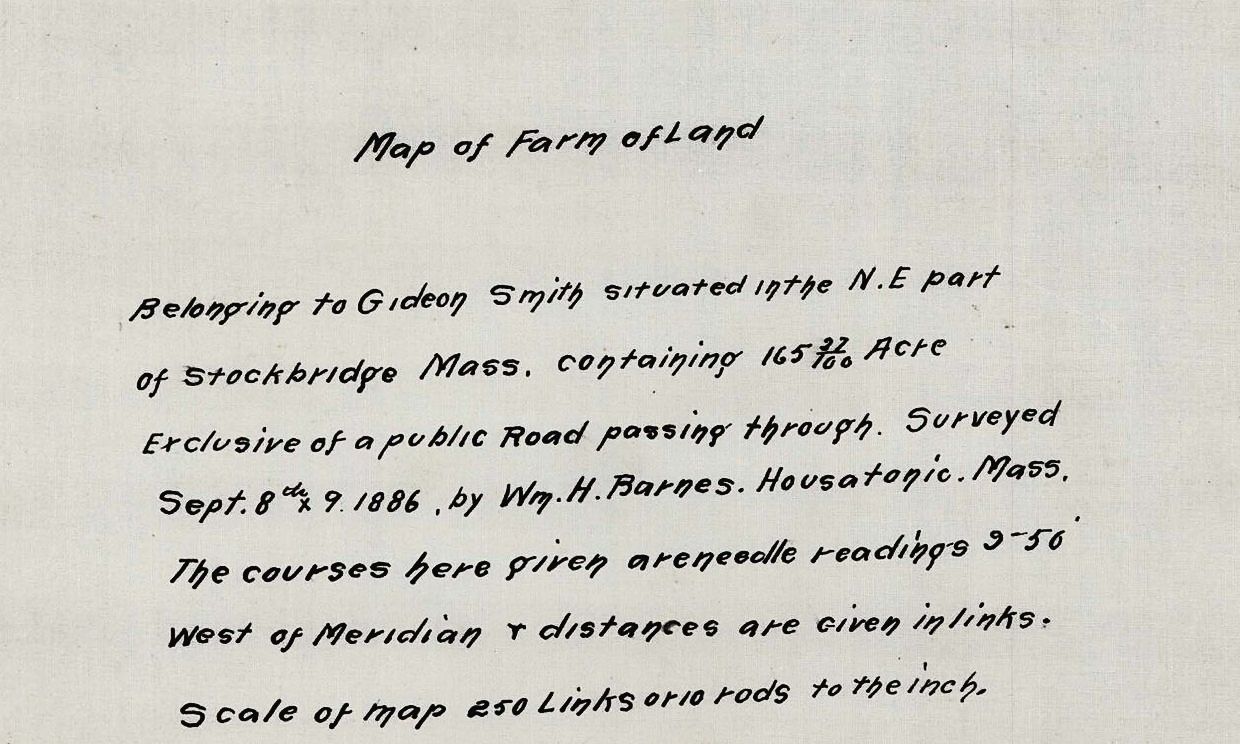 Map of Farm of Land
Belonging to Gideon Smith situated in the N.E part
of Stockbridge Mass. containing 165 37/100 Acre
Exclusive of a public Road passing through. Surveyed
Sept. 8th & 9. 1886, by Wm. H. Barnes. Housatonic. Mass.
The courses here given are needle readings 9-50'
West of Meridian & distances are given in links.
Scale of map 250 Links or 10 rods to the inch.